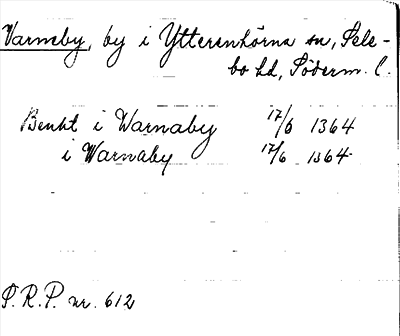 Varnaby, by i Ytterenhörna sn, Sele-
bo hd, Söderm. l.
Benkt i Warnaby 17/6 1364
i Warnaby 17/6 1364
S.R.P. nr. 612